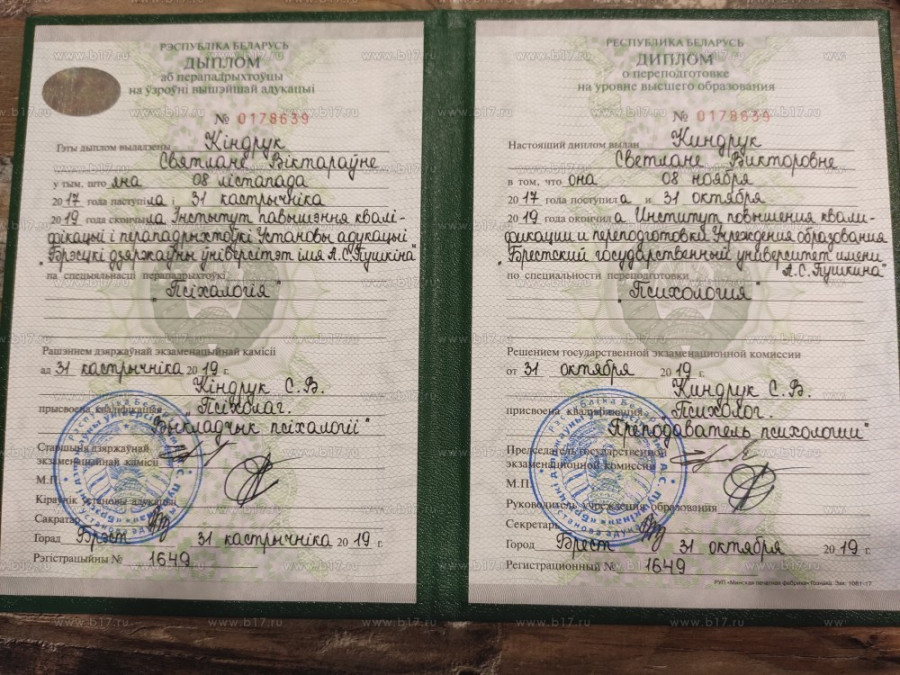 РЭСПУБЛІКА БЕЛАРУСЬ
ДЫПЛОМ
аб перападрыхтоўцы
на ўзроўні вышэйшай адукацыі
№ 0178639
Гэты дыплом выдадзены Кіндрук
Святлане Віктараўне
у тым, што яна 08 лістапада
2017 года паступіла і 31 кастрычніка
2019 года скончыла Інстытут павышэння квалі-
фікацыі і перападрыхтоўкі Установы адукацыі
"Брэсцкі дзяржаўны ўніверсітэт імя А.С.Пушкіна"
па спецыяльнасці перападрыхтоўкі
"Псіхалогія"
Рашэннем дзяржаўнай экзаменацыйнай камісіі
ад 31 кастрычніка 2019 г.
Кіндрук С.В.
прысвоена кваліфікацыя "Псіхолаг.
Выкладчык псіхалогіі"
Старшыня дзяржаўнай
экзаменацыйнай камісіі
М.П.
Кіраўнік установы адукацыі
Сакратар
Горад Брэст 31 кастрычніка 2019 г.
Рэгістрацыйны № 1649
РЕСПУБЛИКА БЕЛАРУСЬ
ДИПЛОМ
о переподготовке
на уровне высшего образования
№ 0178639
Настоящий диплом выдан Киндрук
Светлане Викторовне
в том, что она 08 ноября
2017 года поступила и 31 октября
2019 года окончила Институт повышения квали-
фикации и переподготовки Учреждения образования
"Брестский государственный университет имени
А.С.Пушкина"
по специальности переподготовки
"Психология"
Решением государственной экзаменационной комиссии
от 31 октября 2019 г.
Киндрук С.В.
присвоена квалификация "Психолог.
Преподаватель психологии"
Председатель государственной
экзаменационной комиссии
М.П.
Руководитель учреждения образования
Секретарь
Город Брест 31 октября 2019 г.
Регистрационный № 1649
www.b17.ru